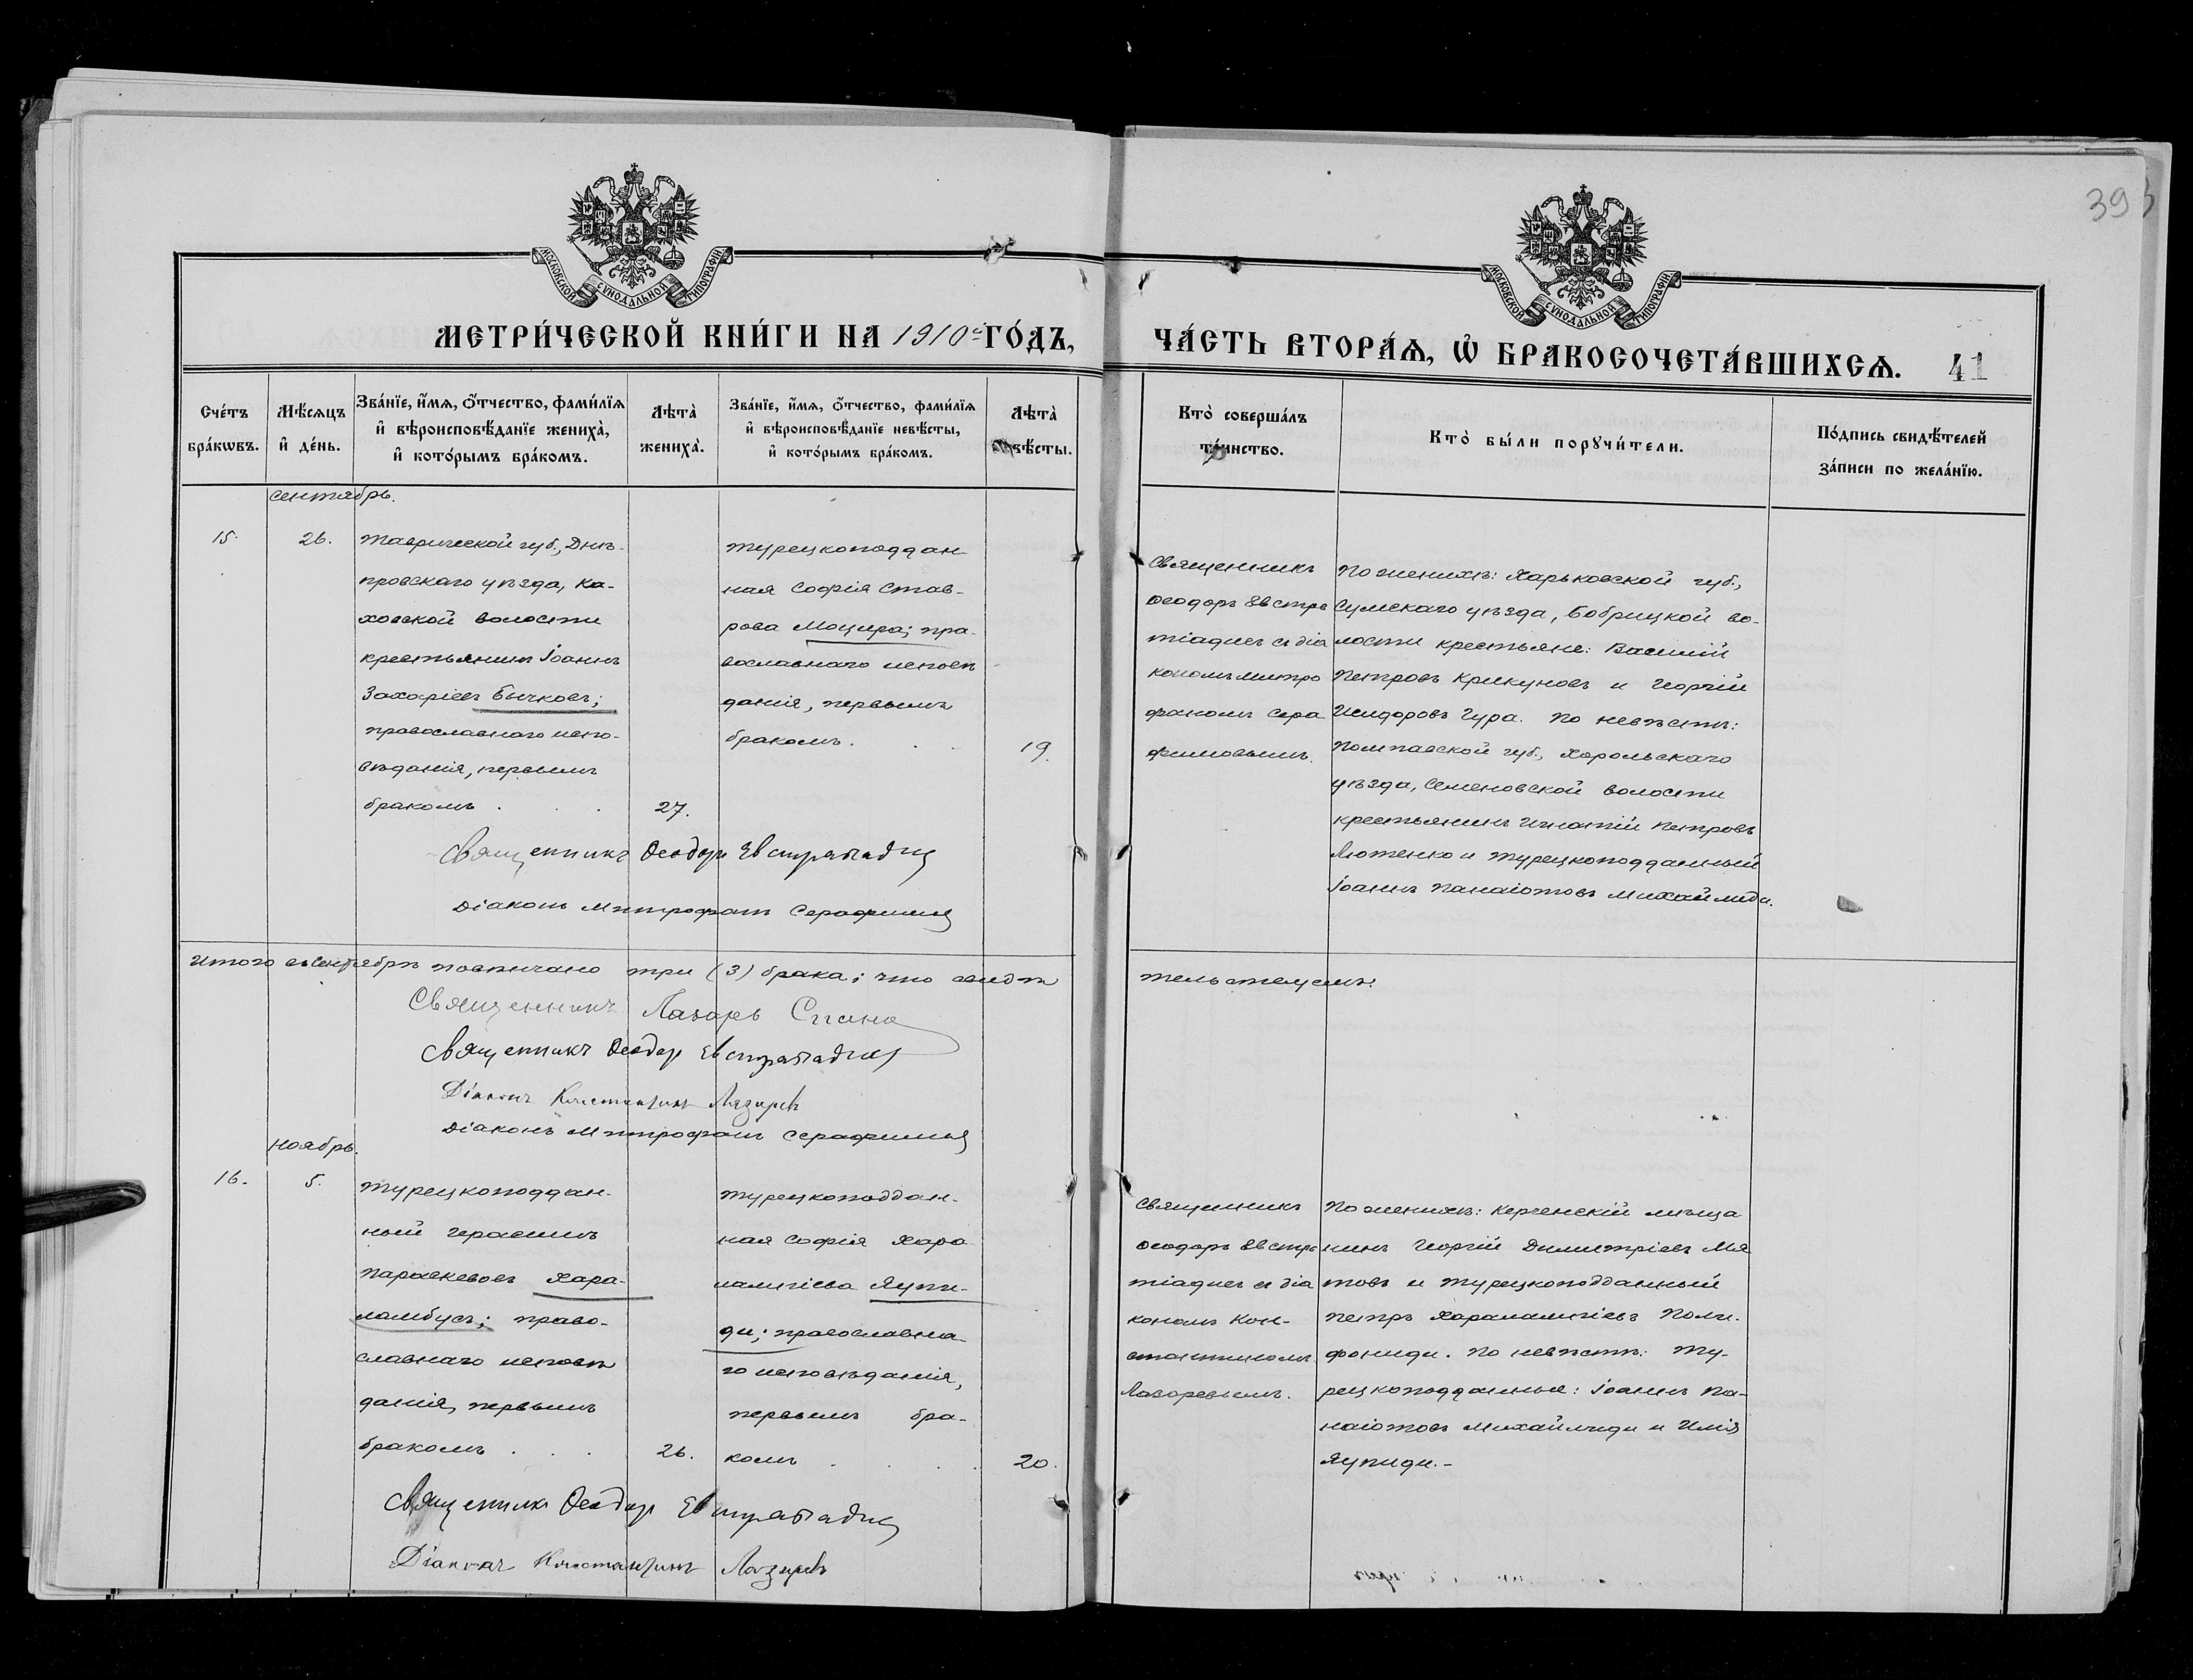 39
МОСКОВСКОЙ СУНОДАЛЬНОЙ ТИПОГРАФІИ
МОСКОВСКОЙ СУНОДАЛЬНОЙ ТИПОГРАФІИ
МЕТРИ́ЧЕСКОЙ КНИ́ГИ НА 1910 г. ГО́ДЪ,
ЧА́СТЬ ВТОРА́Ѧ, Ѡ҆ БРАКОСОЧЕТА́ВШИХСѦ. 41
Сче́тъ бра́кѡвъ.
Мѣ́сяцъ и҆ де́нь.
Зва́нїе, и҆́мѧ, ѻ҆́тчество, фами́лїѧ
и҆ вѣроисповѣ́данїе жениха̀,
и҆ кото́рымъ бра́комъ.
Лѣта̀ жениха̀.
Зва́нїе, и҆́мѧ, ѻ҆́тчество, фами́лїѧ
и҆ вѣроисповѣ́данїе невѣ́сты,
и҆ кото́рымъ бра́комъ.
Лѣта̀ невѣ́сты.
Кто̀ соверша́лъ та́инство.
Кто̀ бы́ли порꙋчи́тели.
По́дпись свидѣ́телей
за́писи по жела́нїю.
Сентябрь.
15.
26.
Таврической губ., Днѣ-
провскаго уѣзда, Ка-
ховской волости
крестьянинъ Іоаннъ
Захаріевъ Бычковъ;
православнаго испо-
вѣданія, первымъ
бракомъ . . .
27.
Турецкоподдан-
ная Софія Став-
рова Моцира; пра-
вославнаго исповѣ
данія, первымъ
бракомъ . .
19.
Священникъ
Ѳеодоръ Евстра
тіадисъ съ діа
кономъ Митро
фаномъ Сера
фимовымъ.
По женихѣ: Харьковской губ.,
Сумскаго уѣзда, Бобрицкой во-
лости крестьяне: Василій
Петровъ Крикуновъ и Георгій
Исидоровъ Гура. По невѣстѣ:
Полтавской губ., Хорольскаго
уѣзда, Семеновской волости
крестьянинъ Игнатій Петровъ
Лютенко и турецкоподданный
Іоаннъ Панаіотовъ Михайлиди.
Священникъ Ѳеодоръ Евстратіадисъ
Діаконъ Митрофанъ Серафимовъ
Итого въ Сентябрѣ повѣнчано три (3) брака; что свидѣ
тельствуемъ:
Священникъ Лазарь Спано
Священникъ Ѳеодоръ Евстратіадисъ
Діаконъ Константинъ Лазаревъ
Діаконъ Митрофанъ Серафимовъ
Ноябрь.
16.
5.
Турецкоподдан-
ный Герасимъ
Параскевовъ Хара-
ламбусъ; право-
славнаго исповѣ
данія, первымъ
бракомъ . . .
26.
Турецкоподдан-
ная Софія Хара
лампіева Яупи-
ди; православна
го исповѣданія,
первымъ бра-
комъ . . . .
20.
Священникъ
Ѳеодоръ Евстра
тіадисъ съ діа
кономъ Кон-
стантиномъ
Лазаревымъ.
По женихѣ: Керченскій мѣща
нинъ Георгій Димитріевъ Мя
товъ и турецкоподданный
Петръ Харалампіевъ Поли-
фониди. По невѣстѣ: Ту-
рецкоподданные: Іоаннъ Па-
наіотовъ Михайлиди и Илія
Яупиди.-
Священникъ Ѳеодоръ Евстратіадисъ
Діаконъ Константинъ Лазаревъ